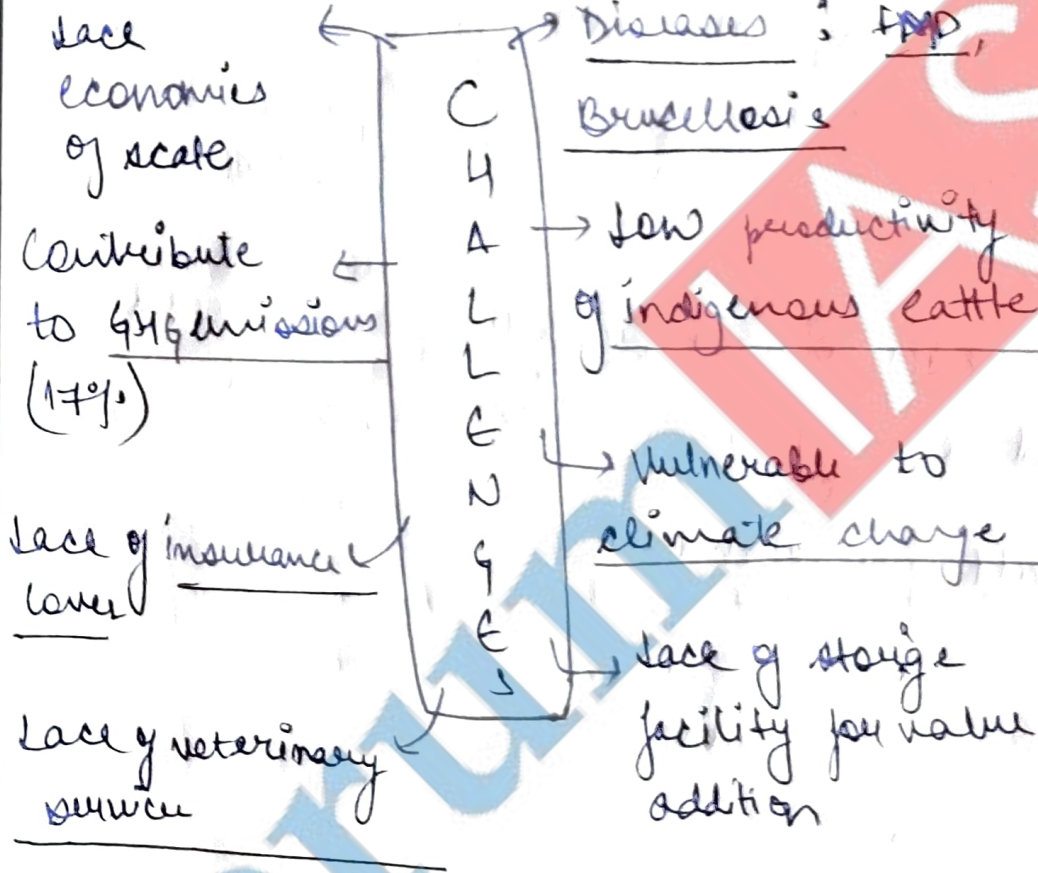 Lack
economies
of scale
Contribute
to GHG emissions
(17%)
Lack of insurance
cover
Lack of veterinary
service
CHALLENGES
Diseases : FMD,
Brucellosis
Low productivity
of indigenous cattle
Vulnerable to
climate change
Lack of storage
facility for value
addition
IAS
rum